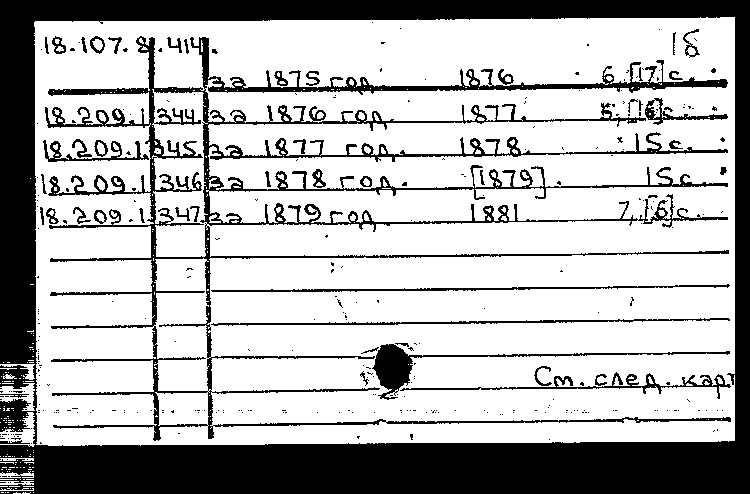 18.107.8.414.
18
за 1875 год 1876. 6, [17] с.
18.209.1.344. за 1876 год. 1877. 5, [16] с.
18.209.1.345. за 1877 год. 1878. 15 с.
18.209.1.346 за 1878 год. [1879]. 15 с.
18.209.1.347. за 1879 год 1881. 7, [6] с.
См. след. карт